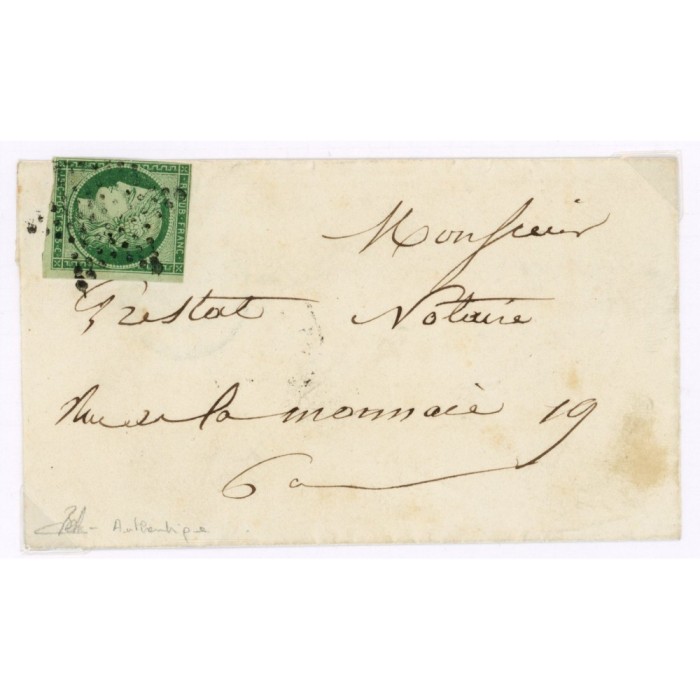 REPUB. FRANC.
Monsieur
Prestat Notaire
Rue de la monnaie 19
Authentique